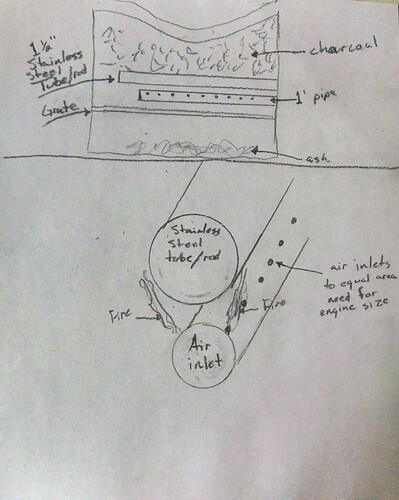 1 1/2"
Stainless
Steel
Tube/rod
charcoal
1' pipe
Grate
ash
Stainless
Steel
tube/rod
air inlets
to equal area
need for
engine size
Fire
Fire
Air
inlet